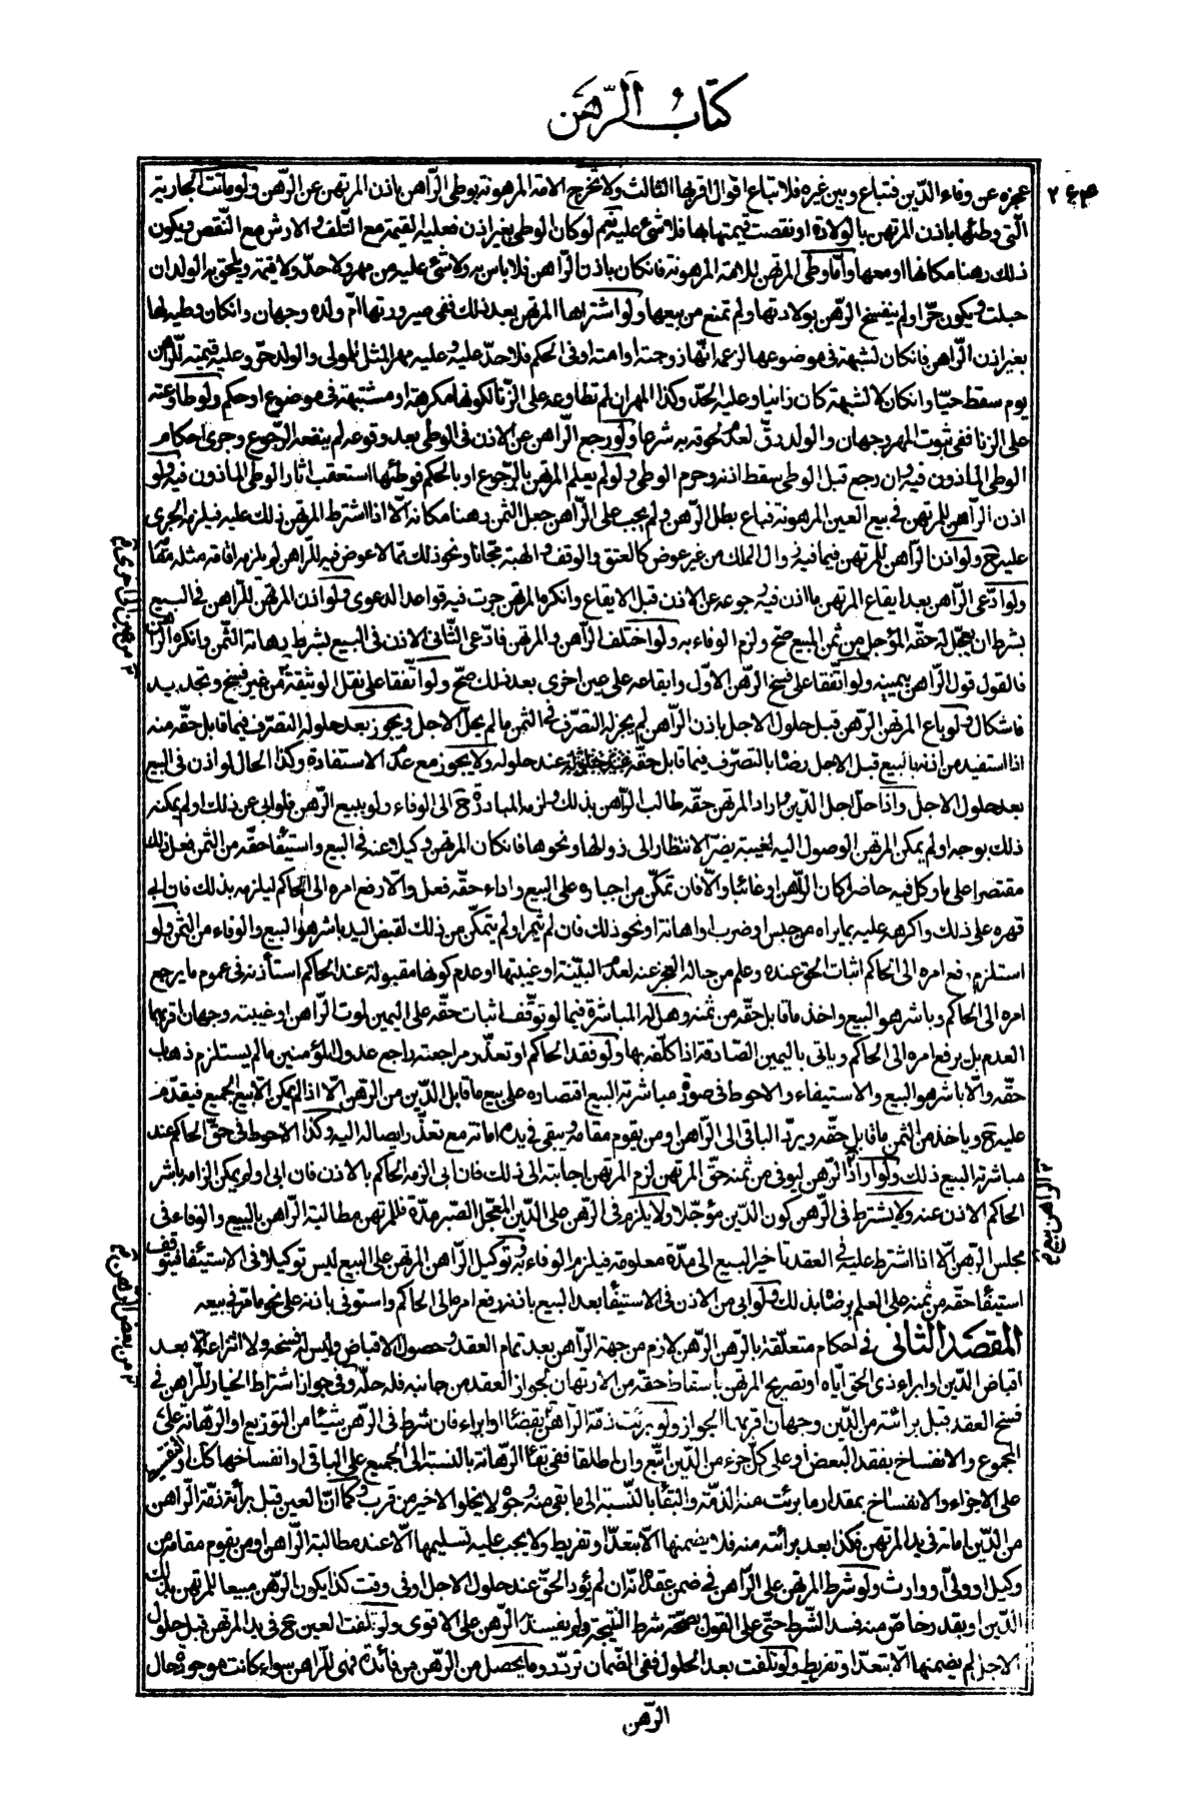 كتاب الرّهن
عجزه عن وفاء الدّين فتباع وبين غيره فلا تباع اقوال اقربها الثالث ولا تخرج الامة المرهونة بوطى الرّاهن باذن المرتهن عن الرّهن ولو ماتت الجارية
الّتى وطئها باذن المرتهن بالولادة او نقصت قيمتها بها فلا شئ عليه نعم لو كان الوطى بغير اذن فعليه القيمة مع التّلف والارش مع النّقص ويكون
ذلك رهنا مكانها او معها وامّا وطى المرتهن للامة المرهونة فان كان باذن الرّاهن فلا باس به ولا شئ عليه من مهر ولا حدّ ولا قيمة ويلحق به الولد ان
حبلت ويكون حرّا ولم ينفسخ الرّهن بولادتها ولم تمنع من بيعها ولو اشتراها المرتهن بعد ذلك ففى صيرورتها امّ ولده وجهان وان كان وطيه لها
بغير اذن الرّاهن فان كان لشبهة فى موضوعها لزعمه انّها زوجته او امته او فى الحكم فلا حدّ عليه وعليه مهر المثل للمولى والولد حرّ وعليه قيمته للرّاهن
يوم سقط حيّا وان كان لا لشبهة كان زانيا وعليه الحدّ وكذا المهر ان لم تطاوعه على الزّنا لكونها مكرهة او مشتبهة فى موضوع او حكم ولو طاوعته
على الزنا ففى ثبوت المهر وجهان والولد رقّ لعدم لحوقه به شرعا ولو رجع الرّاهن عن الاذن فى الوطى بعد وقوعه لم ينفعه الرّجوع وجرى احكام
الوطى الماذون فيه وان رجع قبل الوطى سقط اذنه وحرم الوطى ولو لم يعلم المرتهن بالرّجوع او بالحكم فوطئها استعقب اثار الوطى الماذون فيه ولو
اذن الرّاهن للمرتهن فى بيع العين المرهونة فباع بطل الرّهن ولم يجب على الرّاهن جعل الثمن رهنا مكانه الّا اذا اشترط المرتهن ذلك عليه فيلزمه الجرى
عليه ح ولو اذن الرّاهن للمرتهن فيما فيه زوال الملك من غير عوض كالعتق والوقف والهبة مجّانا ونحو ذلك ممّا لا عوض فيه للرّاهن لم يلزمه اقامة مثله مقامه
ولو ادّعى الرّاهن بعد ايقاع المرتهن ما اذن فيه رجوعه عن الاذن قبل الايقاع وانكره المرتهن جرت فيه قواعد الدعوى ولو اذن المرتهن للرّاهن فى البيع
بشرط ان يعجّل له حقّه المؤجل من ثمن المبيع صحّ ولزم الوفاء به ولو اختلف الرّاهن والمرتهن فادّعى الثّانى الاذن فى البيع بشرط رهانة الثّمن وانكره الرّاهن
فالقول قول الرّاهن بيمينه ولو اتّفقا على فسخ الرّهن الاوّل وايقاعه على عين اخرى بعد ذلك صحّ ولو اتّفقا على نقل الوثيقة من غير فسخ وتجديد
فاشكال ولو باع المرتهن الرّهن قبل حلول الاجل باذن الرّاهن لم يجز له التصرّف فى الثمن ما لم يحلّ الاجل ويجوز بعد حلوله التصرّف فيما قابل حقّه منه
اذا استفيد من اذنه بالبيع قبل الاجل رضا بالتصرّف فيما قابل حقّه عند حلوله ولا يجوز مع عدم الاستفادة وكذا الحال لو اذن فى البيع
بعد حلول الاجل واذا حلّ اجل الدّين واراد المرتهن حقّه طالب الرّاهن بذلك ولزمه المبادرة ح الى الوفاء ولو ببيع الرّهن فلو ابى عن ذلك او لم يمكنه
ذلك بوجه او لم يمكن المرتهن الوصول اليه لغيبة يضرّ الانتظار الى زوالها ونحوها فان كان المرتهن وكيلا عنه فى البيع واستيفاء حقّه من الثمن فعل ذلك
مقتصرا على ما وكل فيه حاضرا كان الرّاهن او غائبا والّا فان تمكّن من اجباره على البيع واداء حقّه فعل والّا رفع امره الى الحاكم ليلزمه بذلك فان ابى
قهره على ذلك واكرهه عليه بما يراه من حبس او ضرب او اهانة او نحو ذلك فان لم يثمر او لم يتمكّن من ذلك لقبض اليد باشر هو البيع والوفاء من الثمن ولو
استلزم رفع امره الى الحاكم اثبات الحق عنده وعلم من حاله العجز عنه لعدم البيّنة او غيبتها او عدم كونها مقبولة عند الحاكم استأذنه فى عموم ما يرجع
امره الى الحاكم وباشر هو البيع واخذ ما قابل حقّه من ثمنه وهل له المباشرة فيما لو توقّف اثبات حقّه على اليمين لموت الرّاهن او غيبته وجهان اقربهما
العدم بل يرفع امره الى الحاكم وياتى باليمين الصّادقة اذا كلّفه بها ولو فقد الحاكم او تعذّر مراجعته راجع عدول المؤمنين ما لم يستلزم ذهاب
حقّه والّا باشر هو البيع والاستيفاء والاحوط فى صورة مباشرة البيع اقتصاره على بيع ما قابل الدّين من الرهن الّا اذا لم يمكن الّا بيع الجميع فيقدّم
عليه ح وياخذ من الثمن ما قابل حقّه ويردّ الباقى الى الرّاهن او من يقوم مقامه ويبقى فى يده امانة مع تعذّر ايصاله اليه وكذا الاحوط فى حقّ الحاكم عند
مباشرته البيع ذلك ولو اراد الرّهن ليوفى من ثمنه حقّ المرتهن لزم المرتهن اجابته الى ذلك فان ابى الزمه الحاكم بالاذن فان ابى ولم يمكن الزامه باشر
الحاكم الاذن عنه ولا يشترط فى الرّهن كون الدّين مؤجّلا ولا يلزم فى الرّهن على الدّين المعجّل الصّبر مدّة فللمرتهن مطالبة الرّاهن بالبيع والوفاء فى
مجلس الرّهن الّا اذا اشترط عليه فى العقد تاخير البيع الى مدّة معلومة فيلزم الوفاء به وتوكيل الرّاهن المرتهن على البيع ليس توكيلا فى الاستيفاء فيتوقف
استيفاء حقّه من ثمنه على العلم برضاه بذلك ولو ابى من الاذن فى الاستيفاء بعد البيع باذنه رفع امره الى الحاكم واستوفى باذنه على نحو ما مرّ فى بيعه
المقصد الثانى فى احكام متعلّقة بالرّهن الرّهن لازم من جهة الرّاهن بعد تمام العقد وحصول الاقباض وليس له فسخه ولا انتزاعه الّا بعد
اقباض الدّين او ابراء ذى الحق ايّاه او تصريح المرتهن باسقاط حقّه من الارتهان لجواز العقد من جانبه فله حلّه وفى جواز اشتراط الخيار للرّاهن فى
فسخ العقد قبل برائته من الدّين وجهان اقربهما الجواز ولو برئت ذمّة الرّاهن بقضاء او ابراء فان شرط فى الرّهن شيئا من التوزيع او الرّهانة على
المجموع والانفساخ بفقد البعض او على كلّ جزء من الدّين اتّبع وان اطلقا ففى بقاء الرّهانة بالنسبة الى الجميع على الباقى او انفساخها كلّا او تقسيمها
على الاجزاء والانفساخ بمقدار ما برئت منه الذمّة والبقاء بالنّسبة الى ما بقى منه وجوه لا يخلو الاخير من قرب وكما انّ العين قبل براءة ذمّة الرّاهن
من الدّين امانة فى يد المرتهن فكذا بعد برائته منه فلا يضمنها الّا بتعدّ او تفريط ولا يجب عليه تسليمها الّا عند مطالبة الرّاهن او من يقوم مقامه من
وكيل او ولىّ او وارث ولو شرط المرتهن على الرّاهن فى ضمن عقده انّه ان لم يؤد الحقّ عند حلول الاجل او فى وقت كذا يكون الرّهن مبيعا للمرتهن بذلك
الدّين او بقدر خاصّ منه فسد الشّرط حتّى على القول بصحّة شرط النّتيجة ولم يفسد الرّهن على الاقوى ولو تلفت العين ح فى يد المرتهن قبل حلول
الاجل لم يضمنها الّا بتعدّ او تفريط ولو تلفت بعد الحلول ففى الضّمان تردّد وما يحصل من الرّهن من فائدة فهى للرّاهن سواء كانت موجودة حال
الرّهن